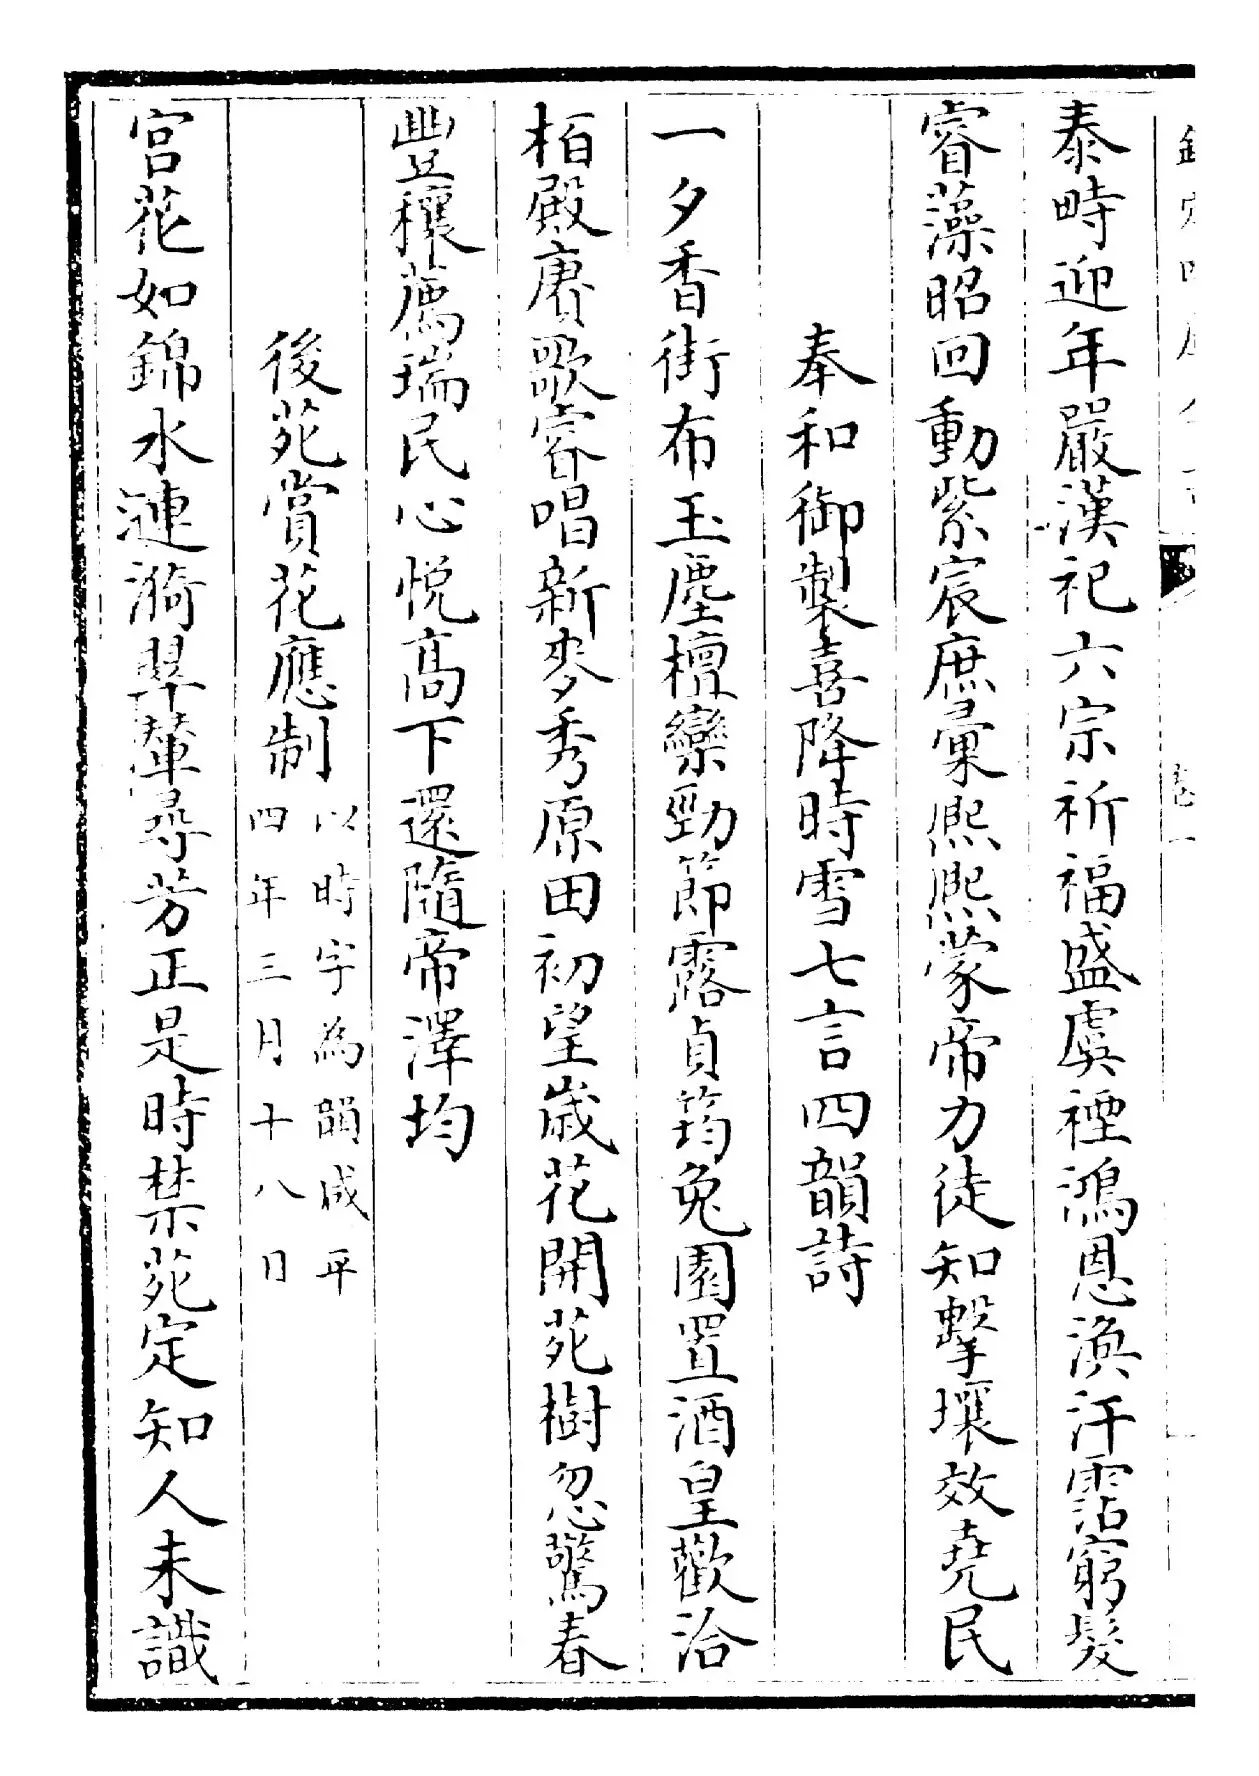 泰畤迎年嚴漢祀六宗祈福盛虞禋鴻恩渙汗霑窮髮
睿藻昭回動紫宸庶彙熙熙蒙帝力徒知擊壤效堯民
奉和御製喜降時雪七言四韻詩
一夕香街布玉塵檀欒勁節露貞筠兔園置酒皇歡洽
栢殿賡歌睿唱新麥秀原田初望歲花開苑樹忽驚春
豐穰薦瑞民心悅髙下還隨帝澤均
後苑賞花應制
以時字為韻咸平
四年三月十八日
宫花如錦水漣漪翠輦尋芳正是時禁苑定知人未識